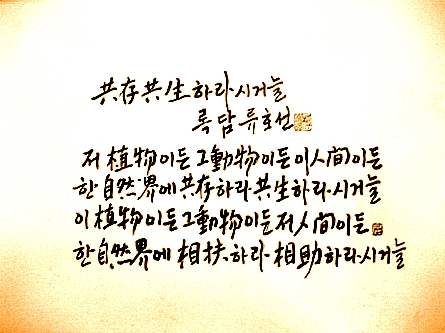 共存共生하라시거늘
록담 류호선
저 植物이든 그 動物이든 이 人間이든
한 自然界에 共存하라 共生하라시거늘
이 植物이든 그 動物이든 저 人間이든
한 自然界에 相扶하라 相助하라시거늘